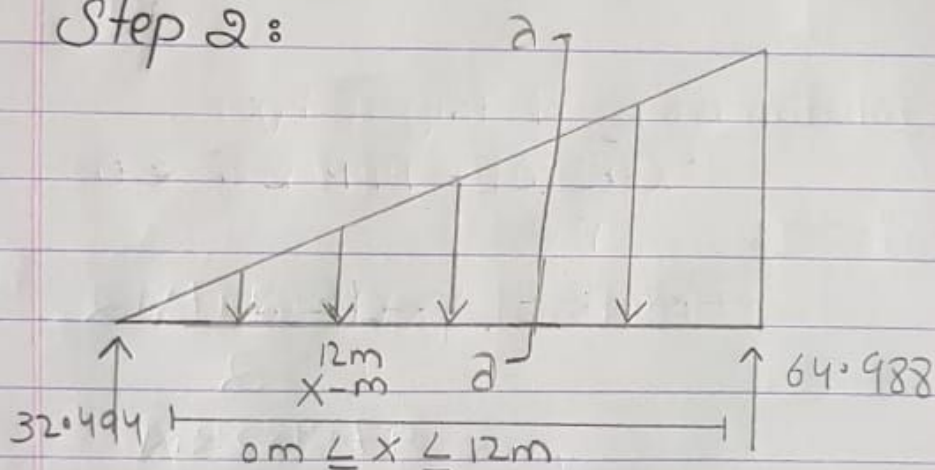 Step 2:
a
12m
X-m
a
64.988
32.494
0m ≤ X ≤ 12m